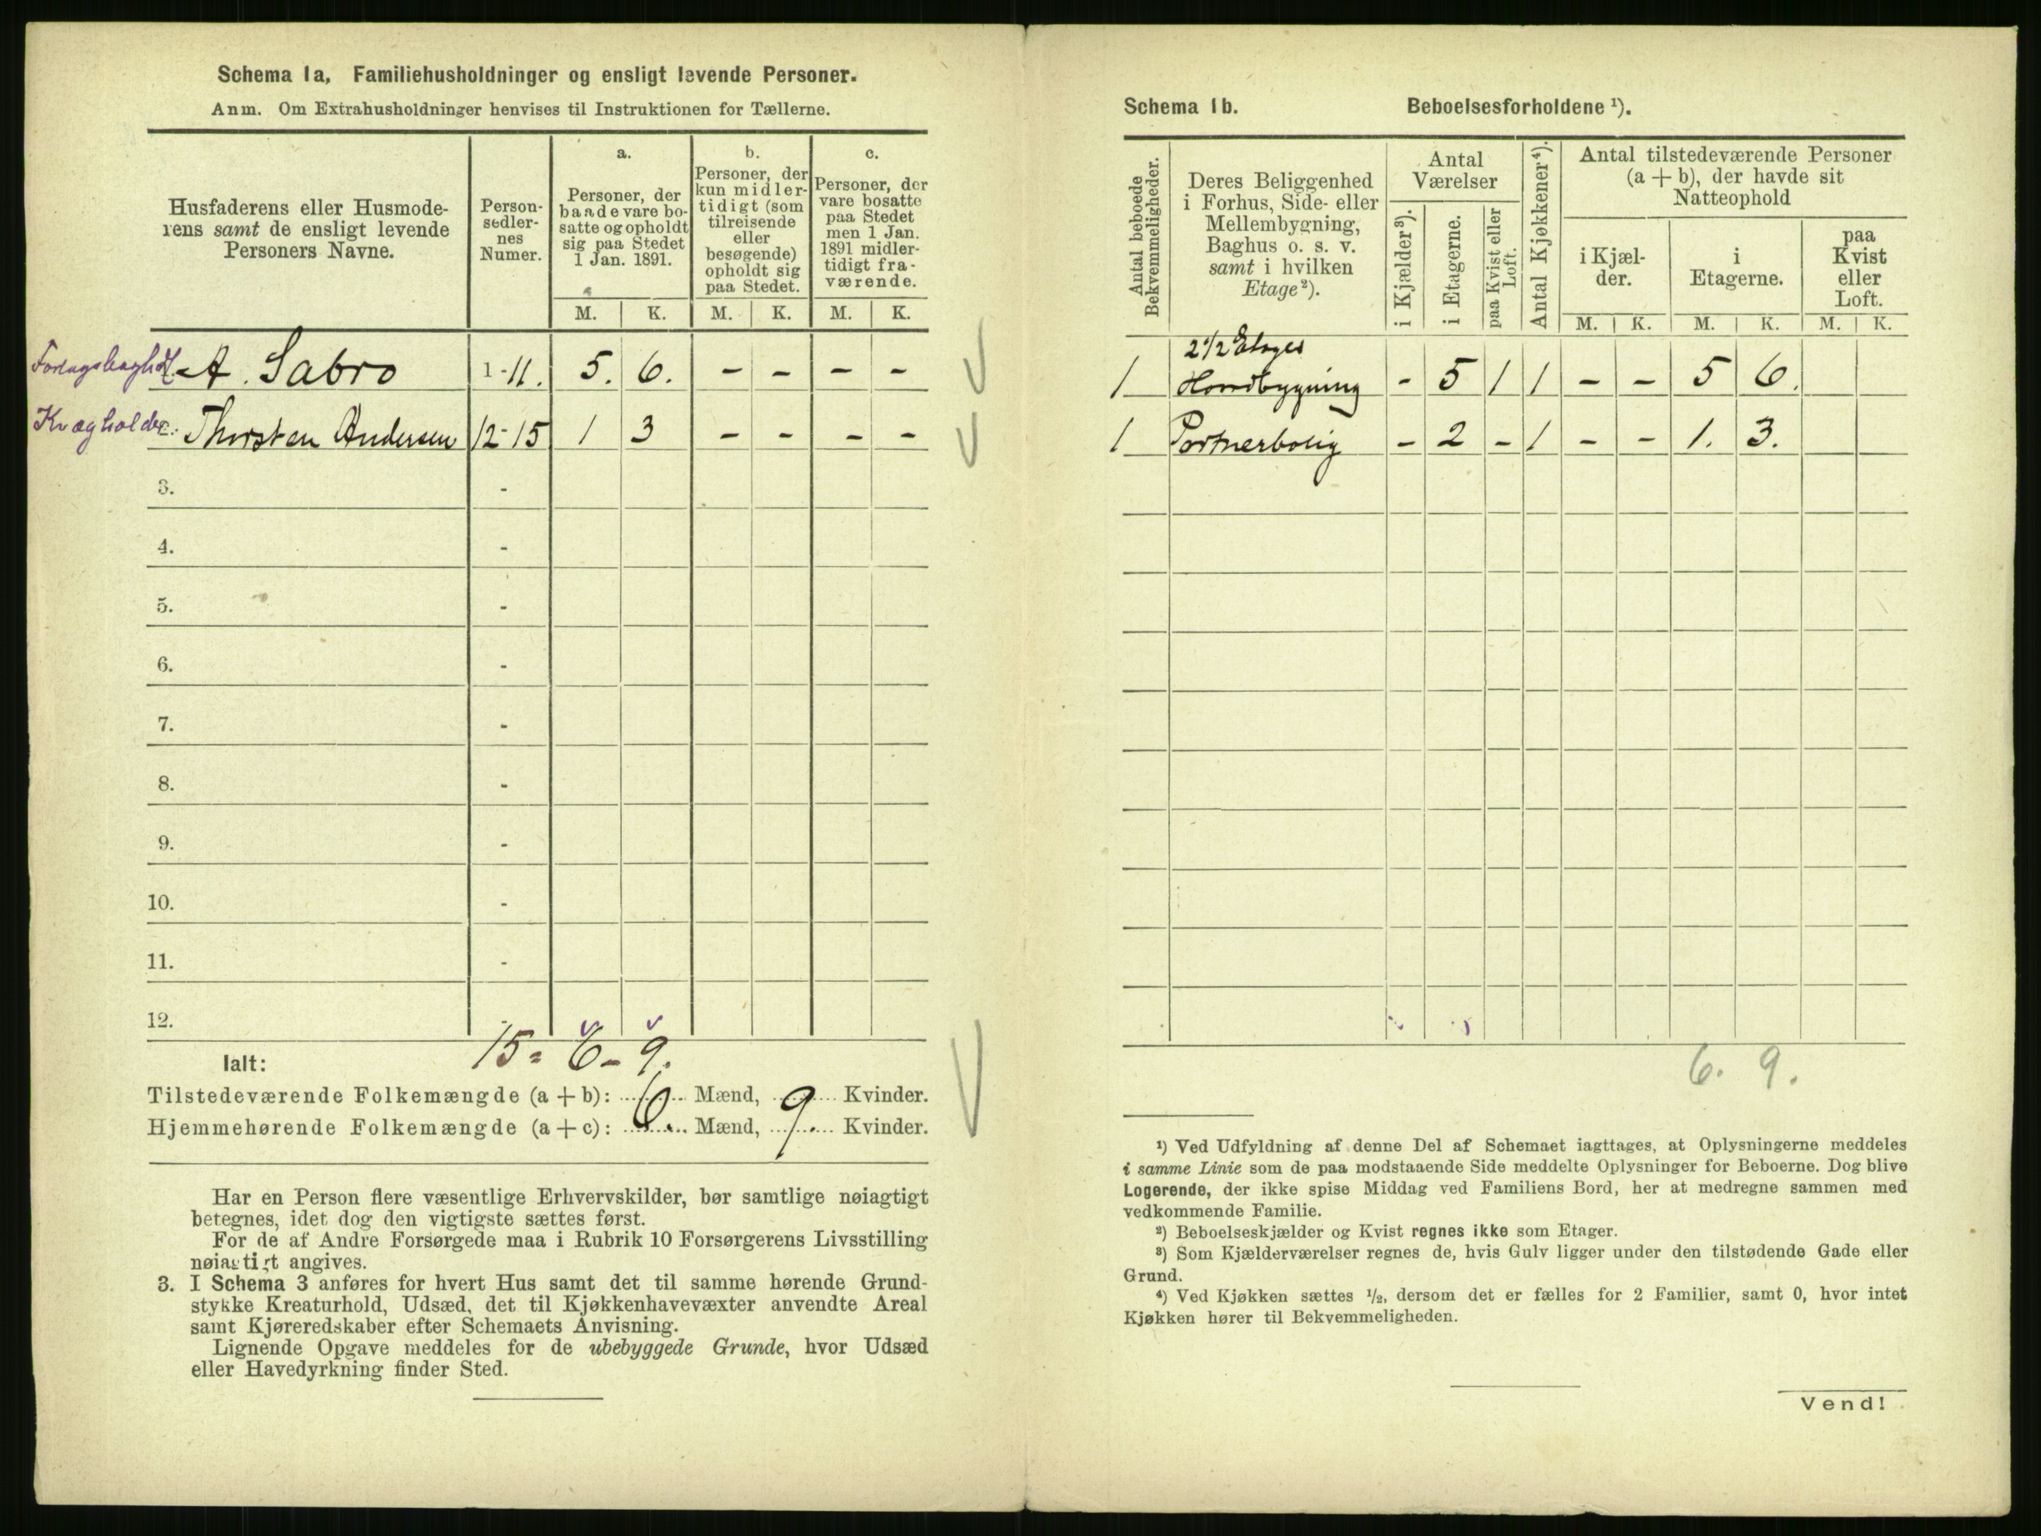 Schema 1a, Familiehusholdninger og ensligt levende Personer.
Anm. Om Extrahusholdninger henvises til Instruktionen for Tællerne.
Husfaderens eller Husmode-
rens samt de ensligt levende
Personers Navne.
Person-
sedler-
nes
Numer.
a.
Personer, der
baade vare bo-
satte og opholdt
sig paa Stedet
1 Jan. 1891.
b.
Personer, der
kun midler-
tidigt (som
tilreisende
eller
besøgende)
opholdt sig
paa Stedet.
c.
Personer, der
vare bosatte
paa Stedet
men 1 Jan.
1891 midler-
tidigt fra-
værende.
M. K. M. K. M. K.
A. Sabro 1-11. 5. 6. - - - -
Thorsten Andersen 12-15 1 3 - - - -
3. -
4. -
5. -
6. -
7. -
8. -
9. -
10. -
11. -
12. -
Ialt: 15 = 6 - 9.
Tilstedeværende Folkemængde (a + b): 6 Mænd, 9 Kvinder.
Hjemmehørende Folkemængde (a + c): 6. Mænd, 9. Kvinder.
Har en Person flere væsentlige Erhvervskilder, bør samtlige nøiagtigt
betegnes, idet dog den vigtigste sættes først.
For de af Andre Forsørgede maa i Rubrik 10 Forsørgerens Livsstilling
nøiagtigt angives.
3. I Schema 3 anføres for hvert Hus samt det til samme hørende Grund-
stykke Kreaturhold, Udsæd, det til Kjøkkenhavevæxter anvendte Areal
samt Kjøreredskaber efter Schemaets Anvisning.
Lignende Opgave meddeles for de ubebyggede Grunde, hvor Udsæd
eller Havedyrkning finder Sted.
Schema 1b. Beboelsesforholdene ¹).
Antal beboede
Bekvemmeligheder.
Deres Beliggenhed
i Forhus, Side- eller
Mellembygning,
Baghus o. s. v.
samt i hvilken
Etage²).
Antal
Værelser
i Kjælder³).
i Etagerne.
paa Kvist eller
Loft.
Antal Kjøkkener⁴).
Antal tilstedeværende Personer
(a + b), der havde sit
Natteophold
i Kjæl-
der.
i
Etagerne.
paa
Kvist
eller
Loft.
M. K. M. K. M. K.
2 1/2 Etages
1 Hovedbygning - 5 1 1 - - 5 6.
1 Portnerbolig - 2 - 1 - - 1. 3.
6. 9.
¹) Ved Udfyldning af denne Del af Schemaet iagttages, at Oplysningerne meddeles
i samme Linie som de paa modstaaende Side meddelte Oplysninger for Beboerne. Dog blive
Logerende, der ikke spise Middag ved Familiens Bord, her at medregne sammen med
vedkommende Familie.
²) Beboelseskjælder og Kvist regnes ikke som Etager.
³) Som Kjælderværelser regnes de, hvis Gulv ligger under den tilstødende Gade eller
Grund.
⁴) Ved Kjøkken sættes ½, dersom det er fælles for 2 Familier, samt 0, hvor intet
Kjøkken hører til Bekvemmeligheden.
Vend!